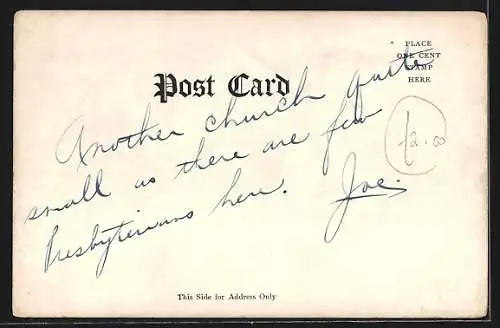 PLACE
ONE CENT
STAMP
HERE
Post Card
Another church quite
small as there are few
Presbyterians here. Joe.
2.00
This Side for Address Only